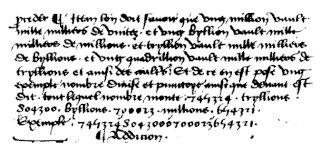 ¶ Item lon doit savoir que ung million vault
mille milliers de unitez · et ung byllion vault mille
milliers de millions · et tryllion vault mille milliers
de byllions · et ung quadrillion vault mille milliers de
tryllions et ainsi des aultres · Et de ce en est pose ung
exemple nombre divise et punctoye ainsi que devant est
dit · tout lequel nombre monte · 745324 · tryllions
804300 · byllions · 700023 · millions · 654321 ·
Exemple · 745324804300700023654321 ·